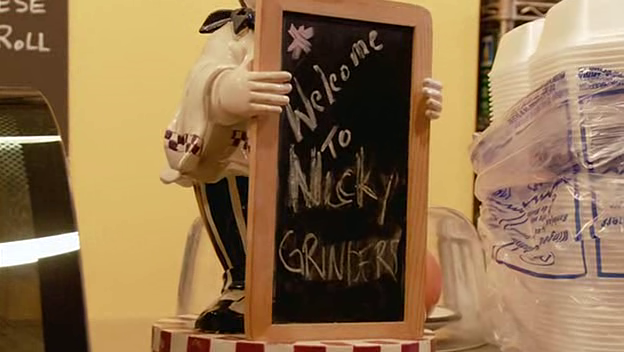 ESE
ROLL
Welcome
To
Nicky
GRINDERS